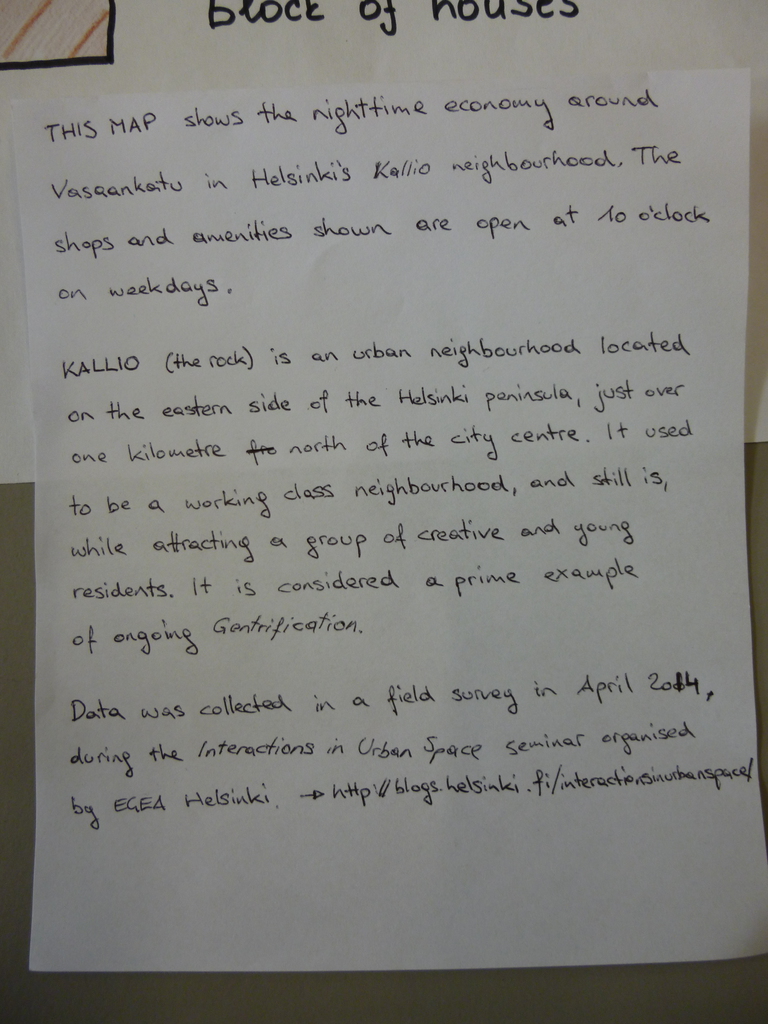 block of houses
THIS MAP shows the nighttime economy around
Vasaankatu in Helsinki's Kallio neighbourhood. The
shops and amenities shown are open at 10 o'clock
on weekdays.
KALLIO (the rock) is an urban neighbourhood located
on the eastern side of the Helsinki peninsula, just over
one kilometre fro north of the city centre. It used
to be a working class neighbourhood, and still is,
while attracting a group of creative and young
residents. It is considered a prime example
of ongoing Gentrification.
Data was collected in a field survey in April 2014,
during the Interactions in Urban Space seminar organised
by EGEA Helsinki. → http://blogs.helsinki.fi/interactionsinurbanspace/